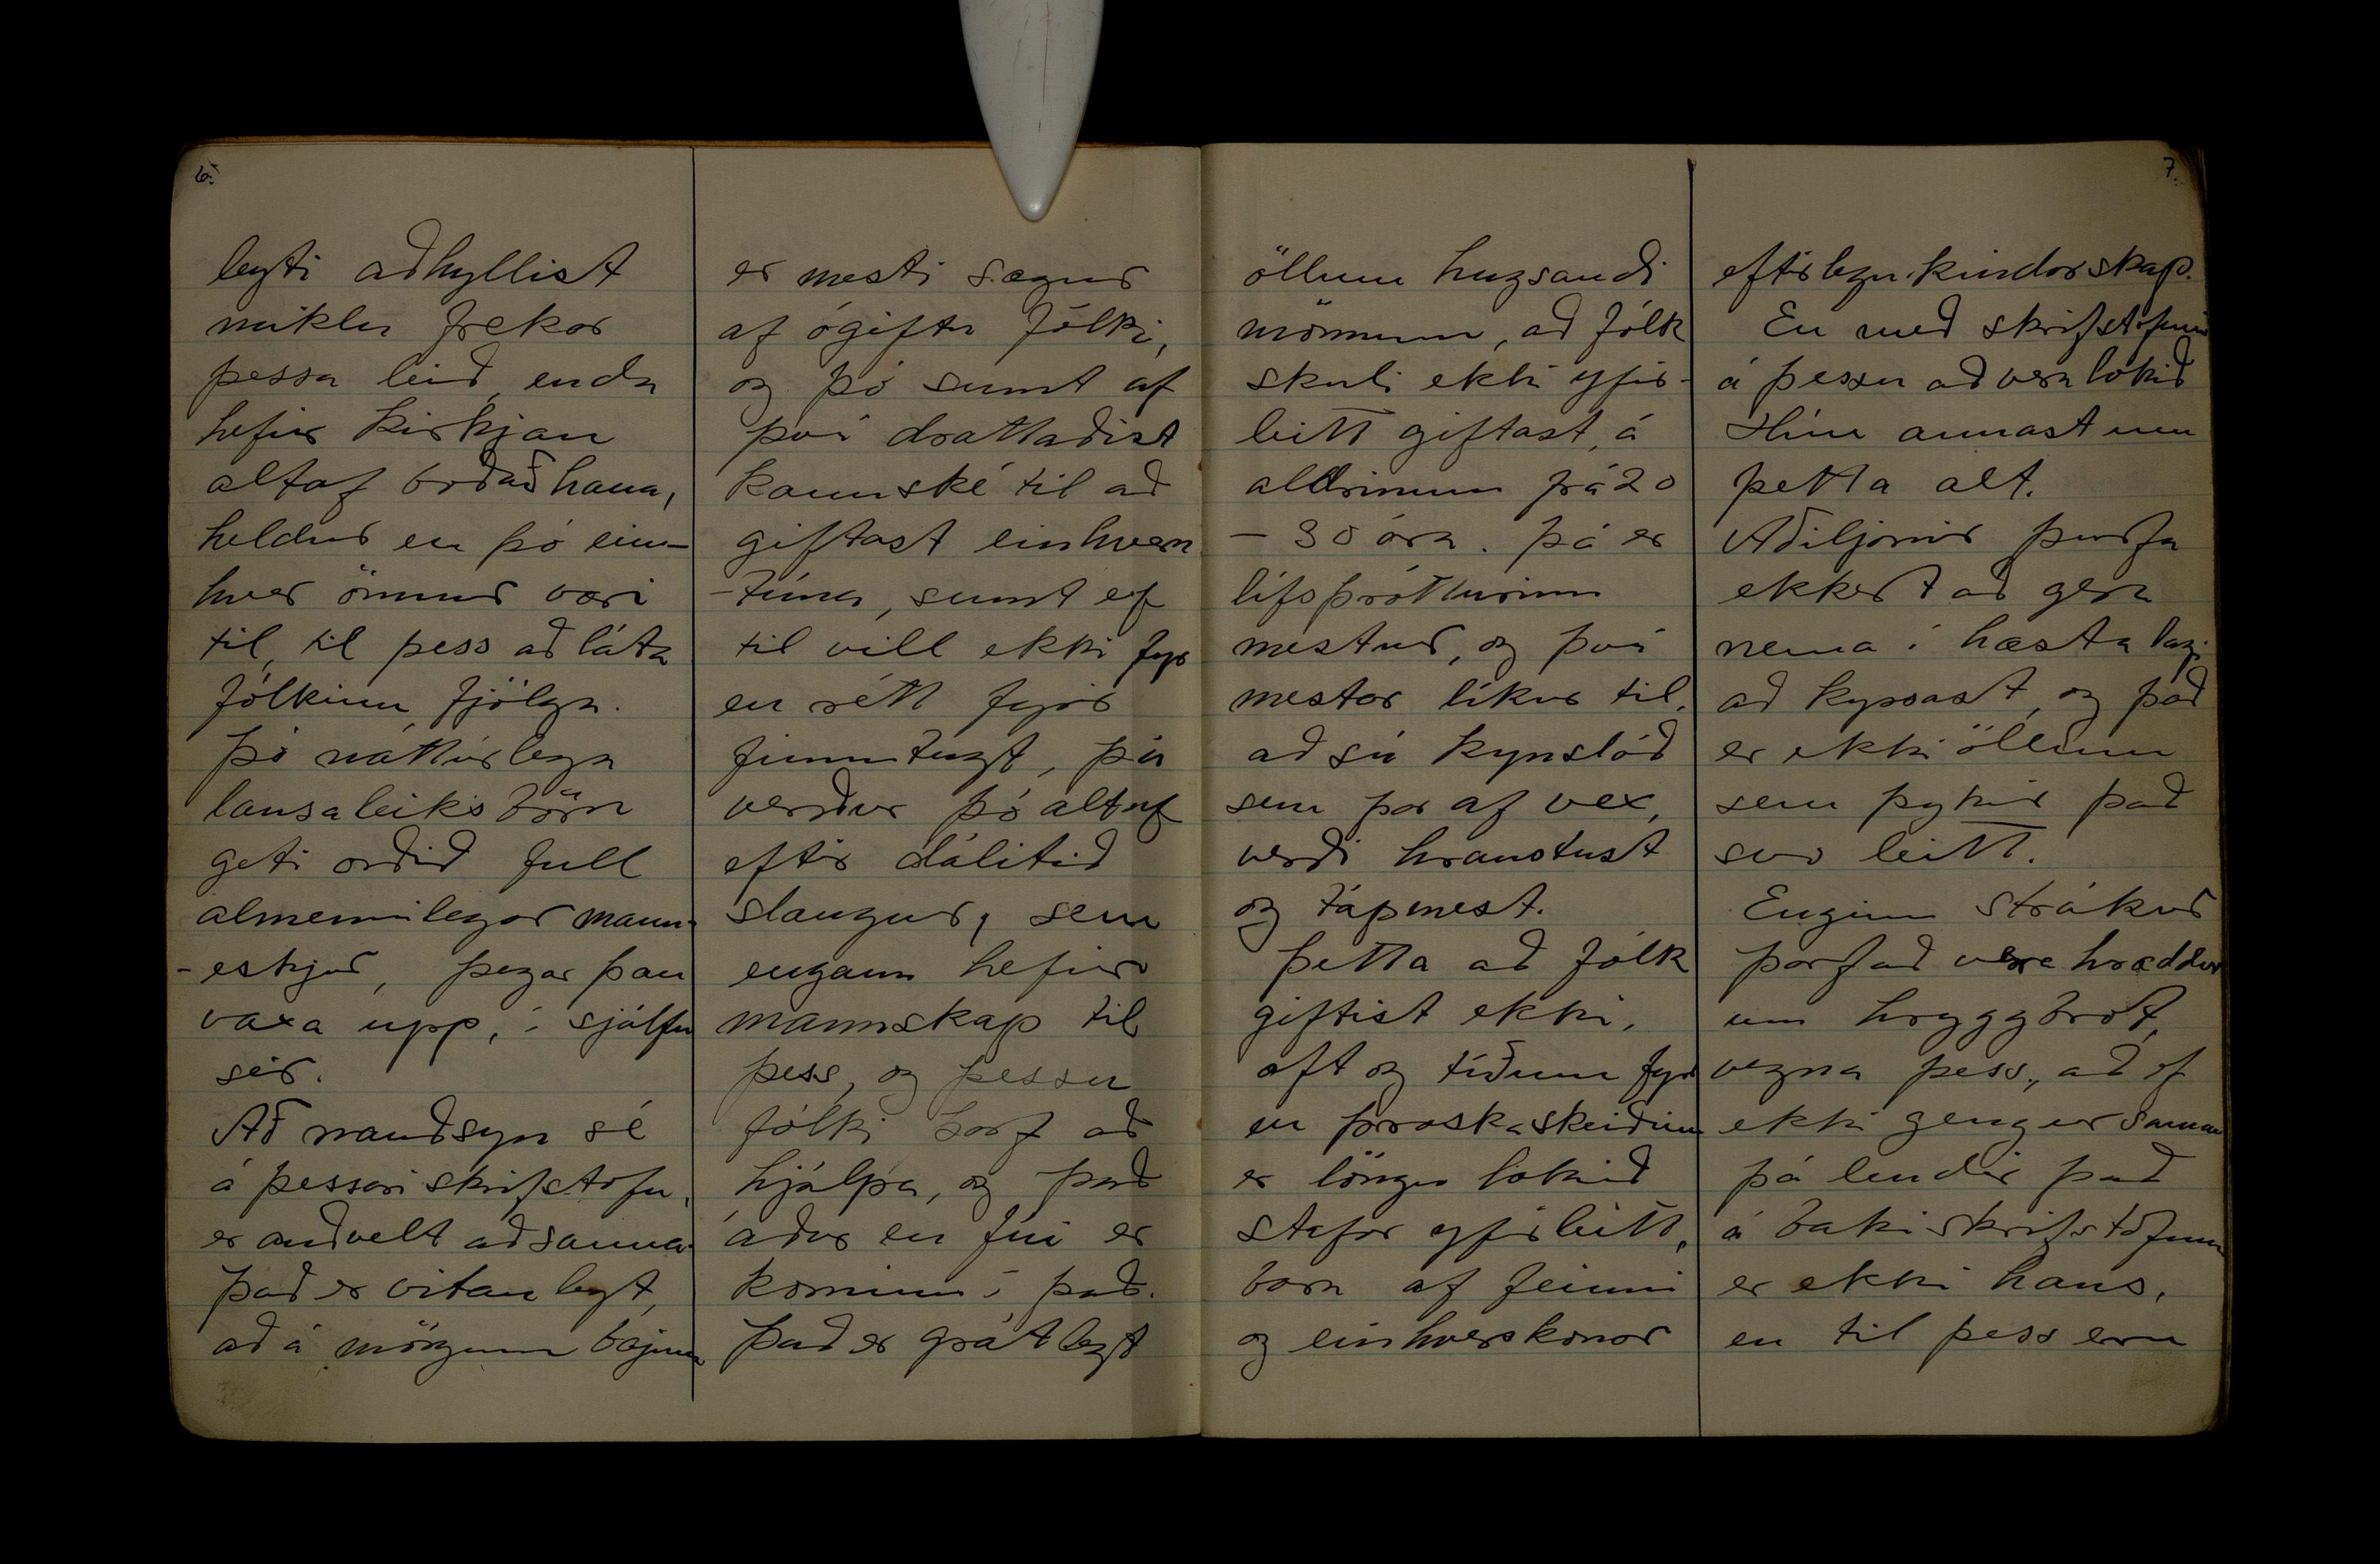 6.
leyti aðhyllist
miklu frekar
þessa leið, enda
hefur kirkjan
altaf boðað hana,
heldur en þó ein-
hver önnur væri
til, til þess að láta
fólkinu fjölga.
Þó náttúrlega
lausaleiksbörn
geti orðið full
almennilegar mann-
-eskjur, þegar þau
vaxa upp, í sjálfu
sér.
Að nauðsyn sé
á þessari skrifstofu,
er auðvelt að sanna.
Það er vitanlegt,
að á mörgum bæjum
er mesti sægur
af ógiftu fólki,
og þó sumt af
því drattaðist
kannské til að
giftast einhvern
-tíma, sumt ef
til vill ekki fyr
en rétt fyrir
fimmtugt, þá
verður þó altaf
eftir dálítið
slangur, sem
engann hefur
mannskap til
þess, og þessu
fólki þarf að
hjálpa, og það
áður en fúi er
kominn í það.
Það er grátlegt
7.
öllum hugsandi
mönnum, að fólk
skuli ekki yfir-
leitt giftast, á
aldrinum frá 20
- 30 ára. þá er
lífsþrótturinn
mestur, og því
mestar líkur til,
að sú kynslóð
sem þar af vex,
verði hraustust
og tápmest.
Þetta að fólk
giftist ekki,
oft og tíðum fyr
en þroskaskeiðinu
er löngu lokið
stafar yfirleitt,
bara af feimni
og einhverskonar
eftirlegukindarskap.
En með skrifstofunni
á þessu að vera lokið
Hún annast um
þetta alt.
Aðiljarnir þurfa
ekkert að gera
nema í hæsta lagi
að kyssast, og það
er ekki öllum
sem þykir það
svo leitt.
Enginn strákur
þarf að vera hræddur
um hryggbrot,
vegna þess, að ef
ekki gengur saman
þá lendir það
á baki skrifstofunnar
er ekki hans,
en til þess eru